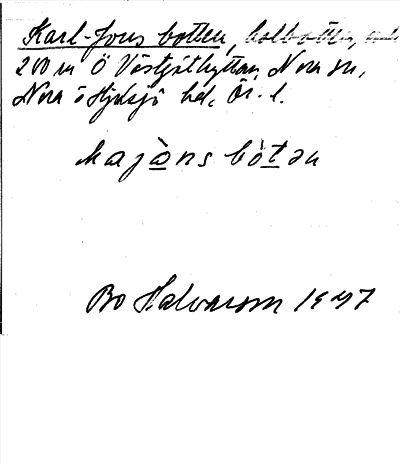 Karl-Jons botten, kolbotten,
200 m Ö Västgöthyttan, Nora sn,
Nora o Hjulsjö hd, Ör. l.
kajàns bòtən
Bo Halvarson 1947